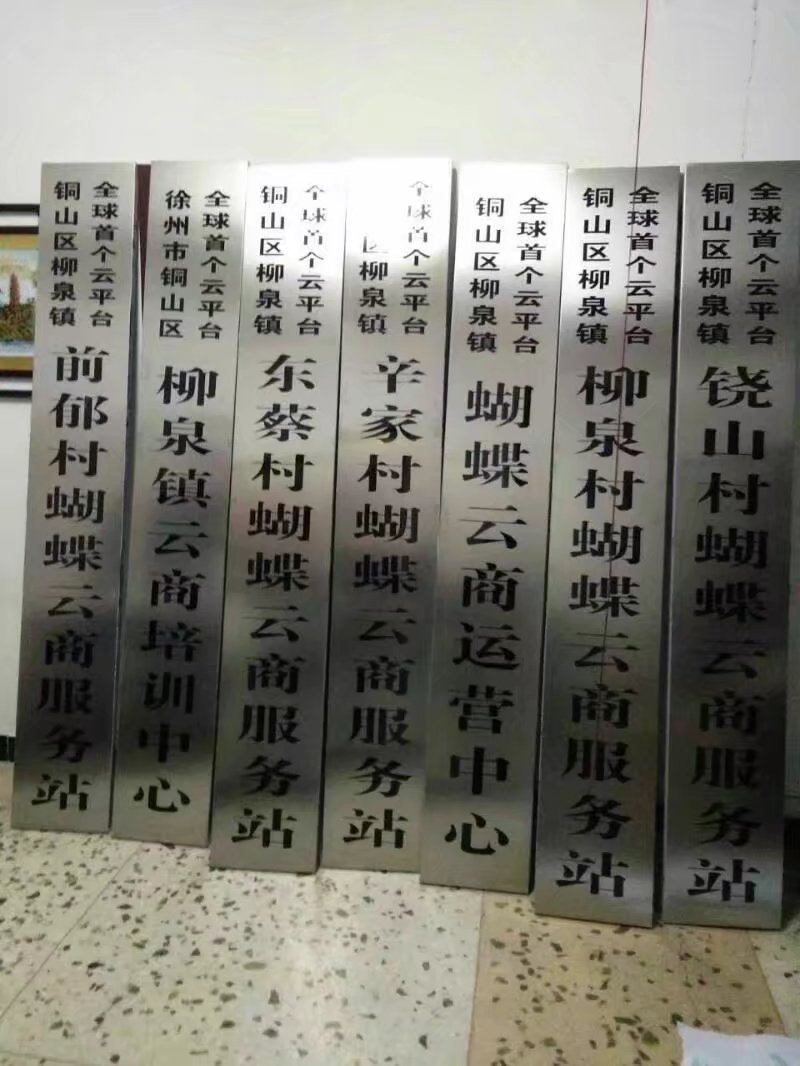 全球首个云平台
铜山区柳泉镇
前郁村蝴蝶云商服务站
全球首个云平台
徐州市铜山区
柳泉镇云商培训中心
全球首个云平台
铜山区柳泉镇
东蔡村蝴蝶云商服务站
全球首个云平台
区柳泉镇
辛家村蝴蝶云商服务站
全球首个云平台
铜山区柳泉镇
蝴蝶云商运营中心
全球首个云平台
铜山区柳泉镇
柳泉村蝴蝶云商服务站
全球首个云平台
铜山区柳泉镇
饶山村蝴蝶云商服务站